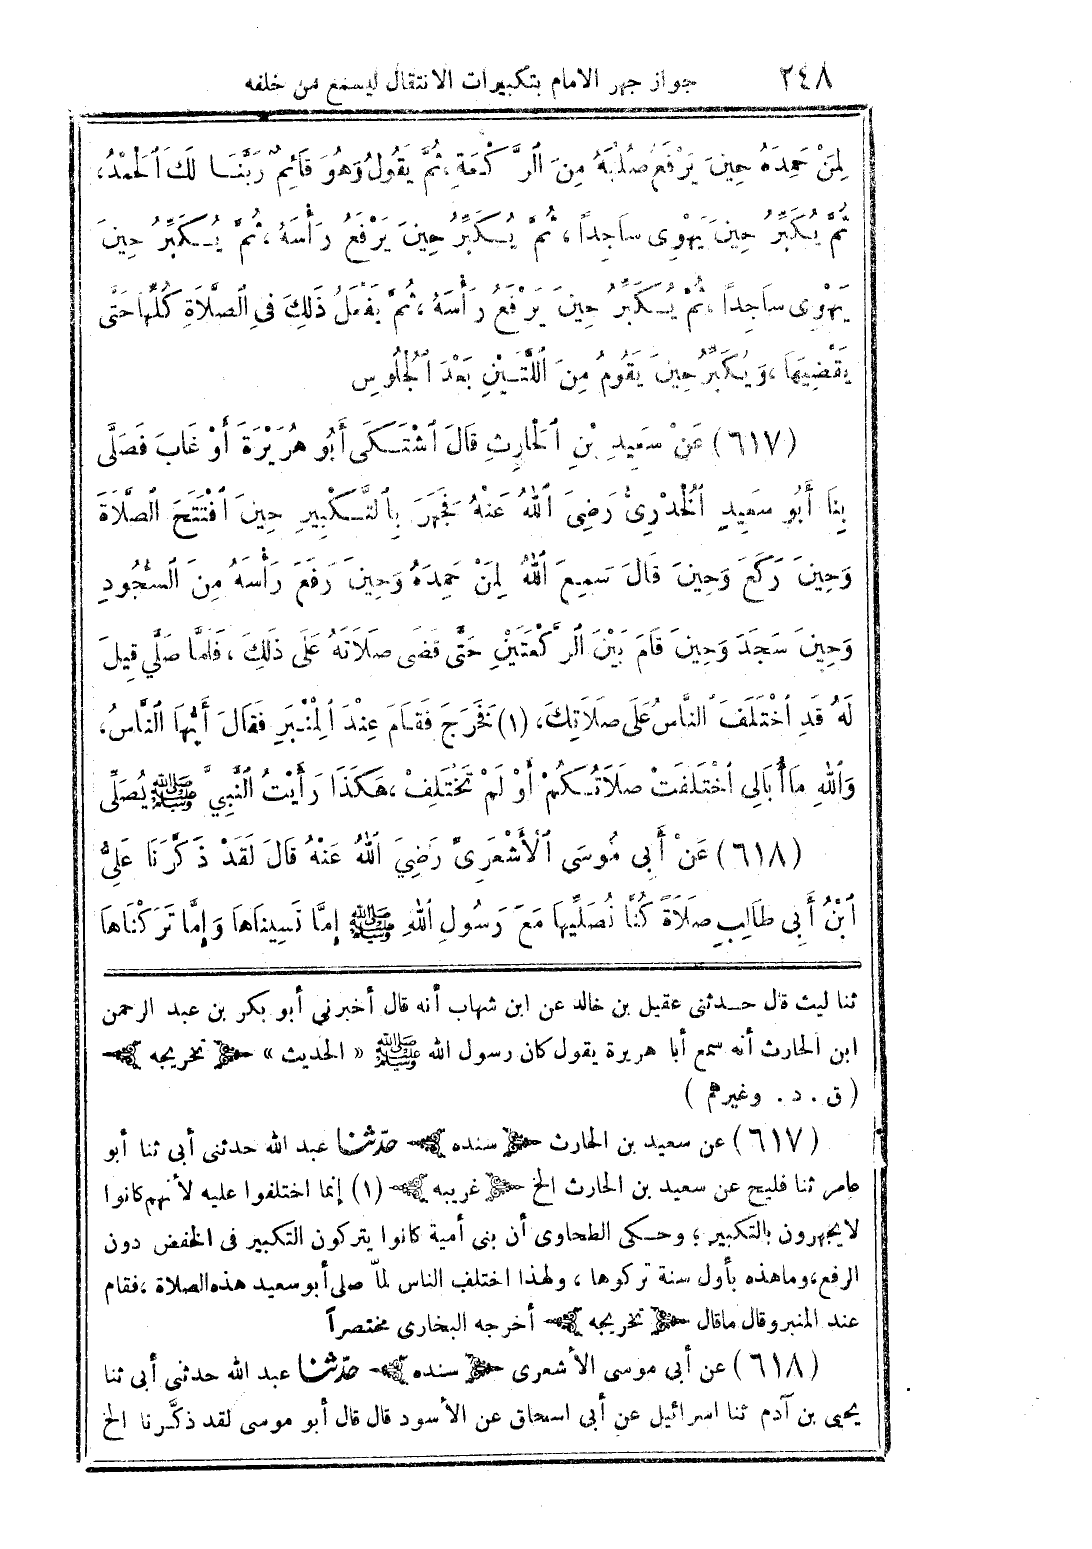 ٢٤٨ جواز جهر الامام بتكبيرات الانتقال ليسمع من خلفه
لِمَنْ حَمِدَهُ حِينَ يَرْفَعُ صُلْبَهُ مِنَ الرَّكْعَةِ، ثُمَّ يَقُولُ وَهُوَ قَائِمٌ رَبَّنَا لَكَ الْحَمْدُ،
ثُمَّ يُكَبِّرُ حِينَ يَهْوِى سَاجِداً، ثُمَّ يُكَبِّرُ حِينَ يَرْفَعُ رَأْسَهُ، ثُمَّ يُكَبِّرُ حِينَ
يَهْوِى سَاجِداً، ثُمَّ يُكَبِّرُ حِينَ يَرْفَعُ رَأْسَهُ، ثُمَّ يَفْعَلُ ذَلِكَ فِى الصَّلَاةِ كُلِّهَا حَتَّى
يَقْضِيَهَا، وَيُكَبِّرُ حِينَ يَقُومُ مِنَ اللَّتَيْنِ بَعْدَ الْجُلُوسِ
(٦١٧) عَنْ سَعِيدِ بْنِ الْحَارِثِ قَالَ اشْتَكَى أَبُو هُرَيْرَةَ أَوْ غَابَ فَصَلَّى
بِنَا أَبُو سَعِيدٍ الْخُدْرِىُّ رَضِيَ اللهُ عَنْهُ فَجَهَرَ بِالتَّكْبِيرِ حِينَ افْتَتَحَ الصَّلَاةَ
وَحِينَ رَكَعَ وَحِينَ قَالَ سَمِعَ اللهُ لِمَنْ حَمِدَهُ وَحِينَ رَفَعَ رَأْسَهُ مِنَ السُّجُودِ
وَحِينَ سَجَدَ وَحِينَ قَامَ بَيْنَ الرَّكْعَتَيْنِ حَتَّى قَضَى صَلَاتَهُ عَلَى ذَلِكَ، فَلَمَّا صَلَّى قِيلَ
لَهُ قَدِ اخْتَلَفَ النَّاسُ عَلَى صَلَاتِكَ، (١) فَخَرَجَ فَقَامَ عِنْدَ الْمِنْبَرِ فَقَالَ أَيُّهَا النَّاسُ،
وَاللهِ مَا أُبَالِى اخْتَلَفَتْ صَلَاتُكُمْ أَوْ لَمْ تَخْتَلِفْ، هَكَذَا رَأَيْتُ النَّبِيَّ ﷺ يُصَلِّى
(٦١٨) عَنْ أَبِى مُوسَى الْأَشْعَرِىِّ رَضِيَ اللهُ عَنْهُ قَالَ لَقَدْ ذَكَّرَنَا عَلِىُّ
ابْنُ أَبِى طَالِبٍ صَلَاةً كُنَّا نُصَلِّيهَا مَعَ رَسُولِ اللهِ ﷺ إِمَّا نَسِينَاهَا وَإِمَّا تَرَكْنَاهَا
ثنا ليث قال حدثنى عقيل بن خالد عن ابن شهاب أنه قال أخبرنى أبو بكر بن عبد الرحمن
ابن الحارث أنه سمع أبا هريرة يقول كان رسول الله ﷺ « الحديث » تخريجه
(ق . د . وغيرهم)
(٦١٧) عن سعيد بن الحارث سنده حدّثنا عبد الله حدثنى أبى ثنا أبو
عامر ثنا فليح عن سعيد بن الحارث الخ غريبه (١) إنما اختلفوا عليه لأنهم كانوا
لا يجهرون بالتكبير؛ وحكى الطحاوى أن بنى أمية كانوا يتركون التكبير فى الخفض دون
الرفع، وما هذه بأول سنة تركوها، ولهذا اختلف الناس لمّا صلى أبو سعيد هذه الصلاة، فقام
عند المنبر وقال ما قال تخريجه أخرجه البخارى مختصراً
(٦١٨) عن أبى موسى الأشعرى سنده حدّثنا عبد الله حدثنى أبى ثنا
يحيى بن آدم ثنا اسرائيل عن أبى اسحاق عن الأسود قال قال أبو موسى لقد ذكَّرنا الخ